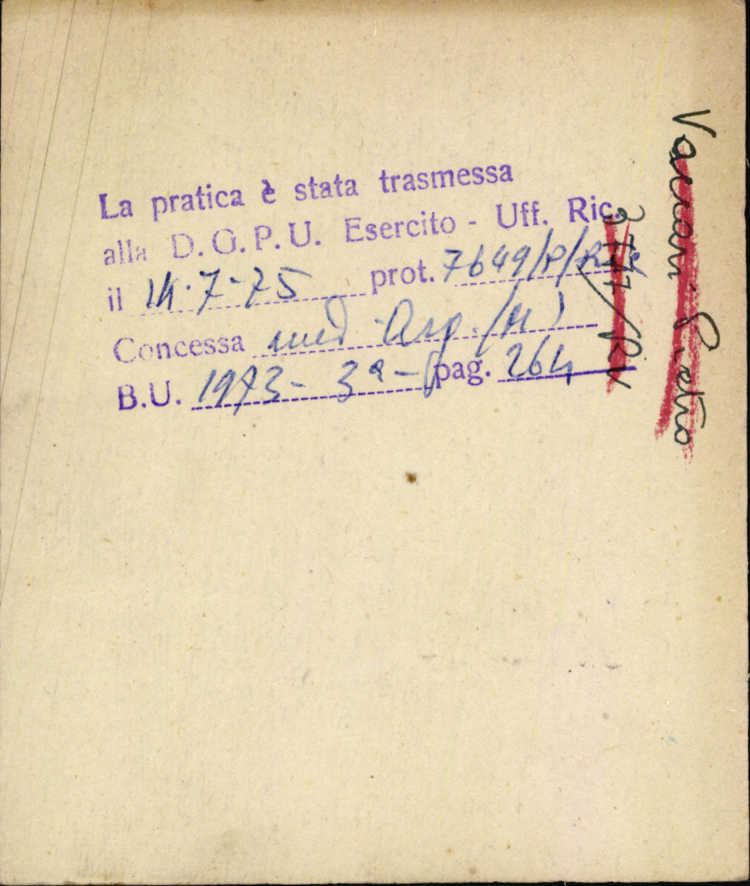 La pratica è stata trasmessa
alla D.G.P.U. Esercito - Uff. Ric.
il 14.7-75 prot. 7649/P/
Concessa med Arg. (M)
B.U. 1973 - 3ª - pag. 264